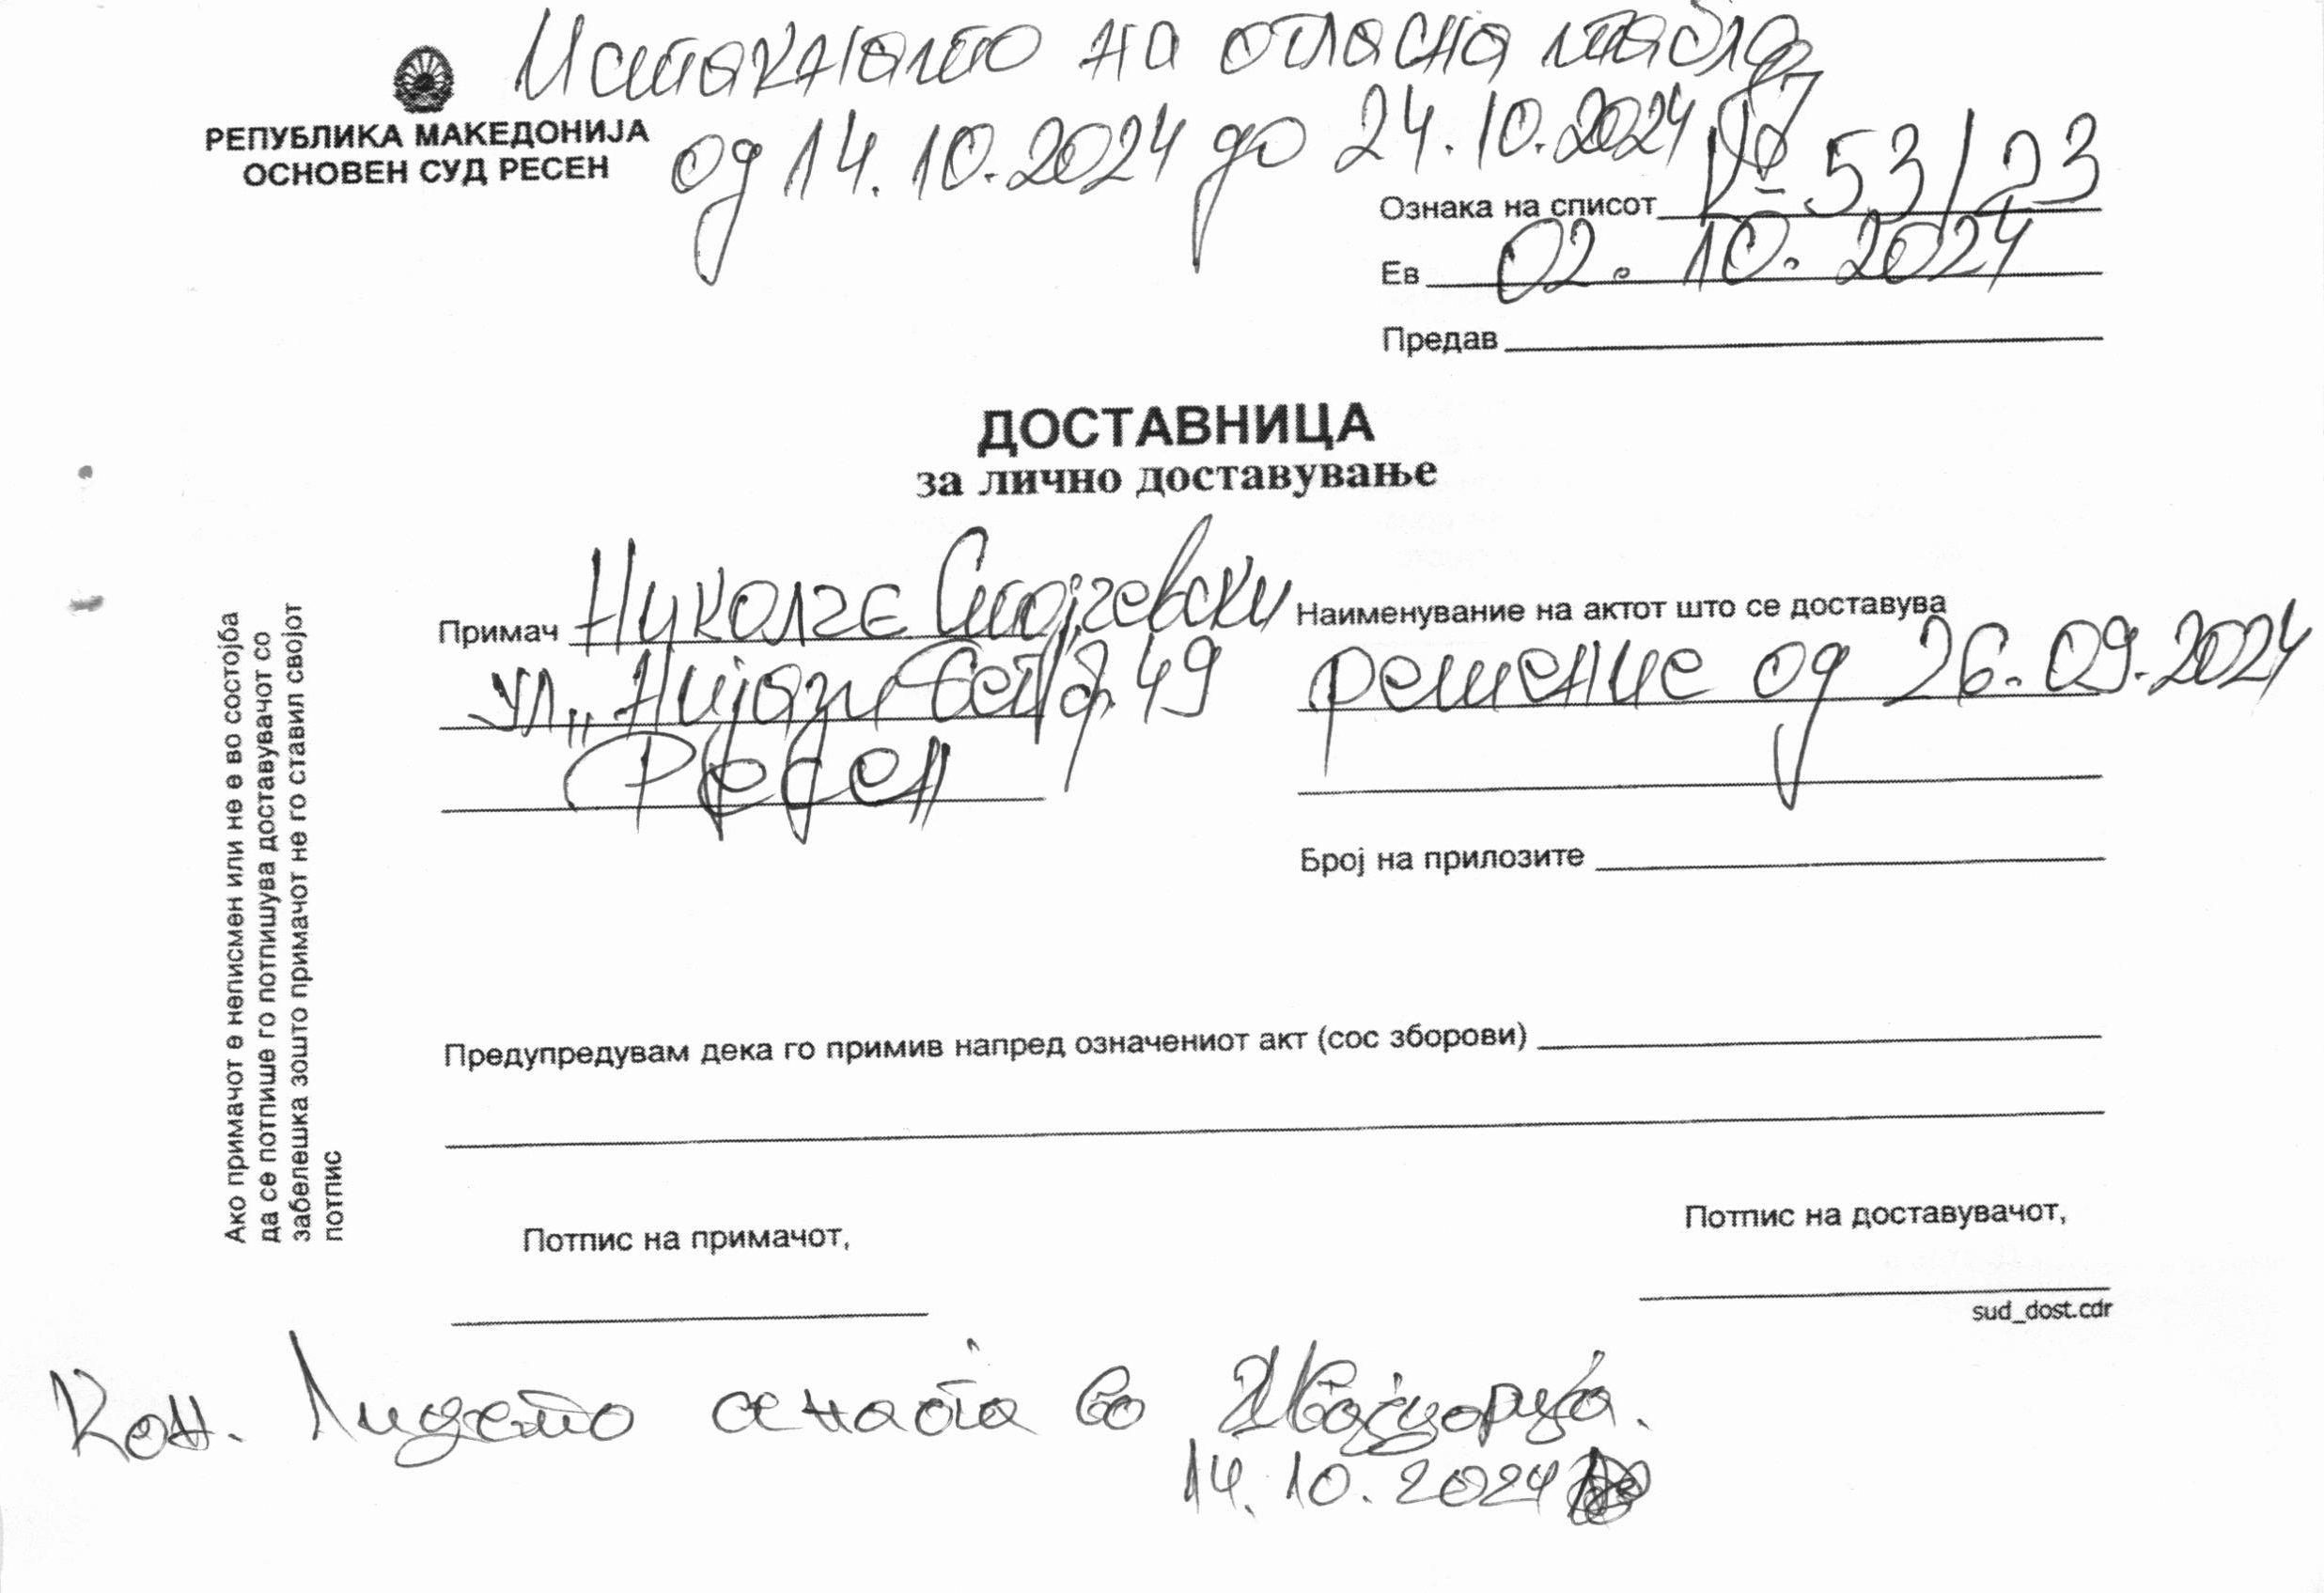 Истакнато на огласна табла
од 14.10.2024 до 24.10.2024
РЕПУБЛИКА МАКЕДОНИЈА
ОСНОВЕН СУД РЕСЕН
Ознака на списот 53/23
Ев 02.10.2024
Предав
ДОСТАВНИЦА
за лично доставување
Примач Николче Стојчевски
ул. „Нијази Бег" бр. 49
Ресен
Наименување на актот што се доставува
решение од 26.09.2024
Број на прилозите
Предупредувам дека го примив напред означениот акт (сос зборови)
Потпис на примачот,
Потпис на доставувачот,
sud_dost.cdr
Ако примачот е неписмен или не е во состојба
да се потпише го потпишува доставувачот со
забелешка зошто примачот не го ставил својот
потпис
Кон. Лицето се наоѓа во
14.10.2024